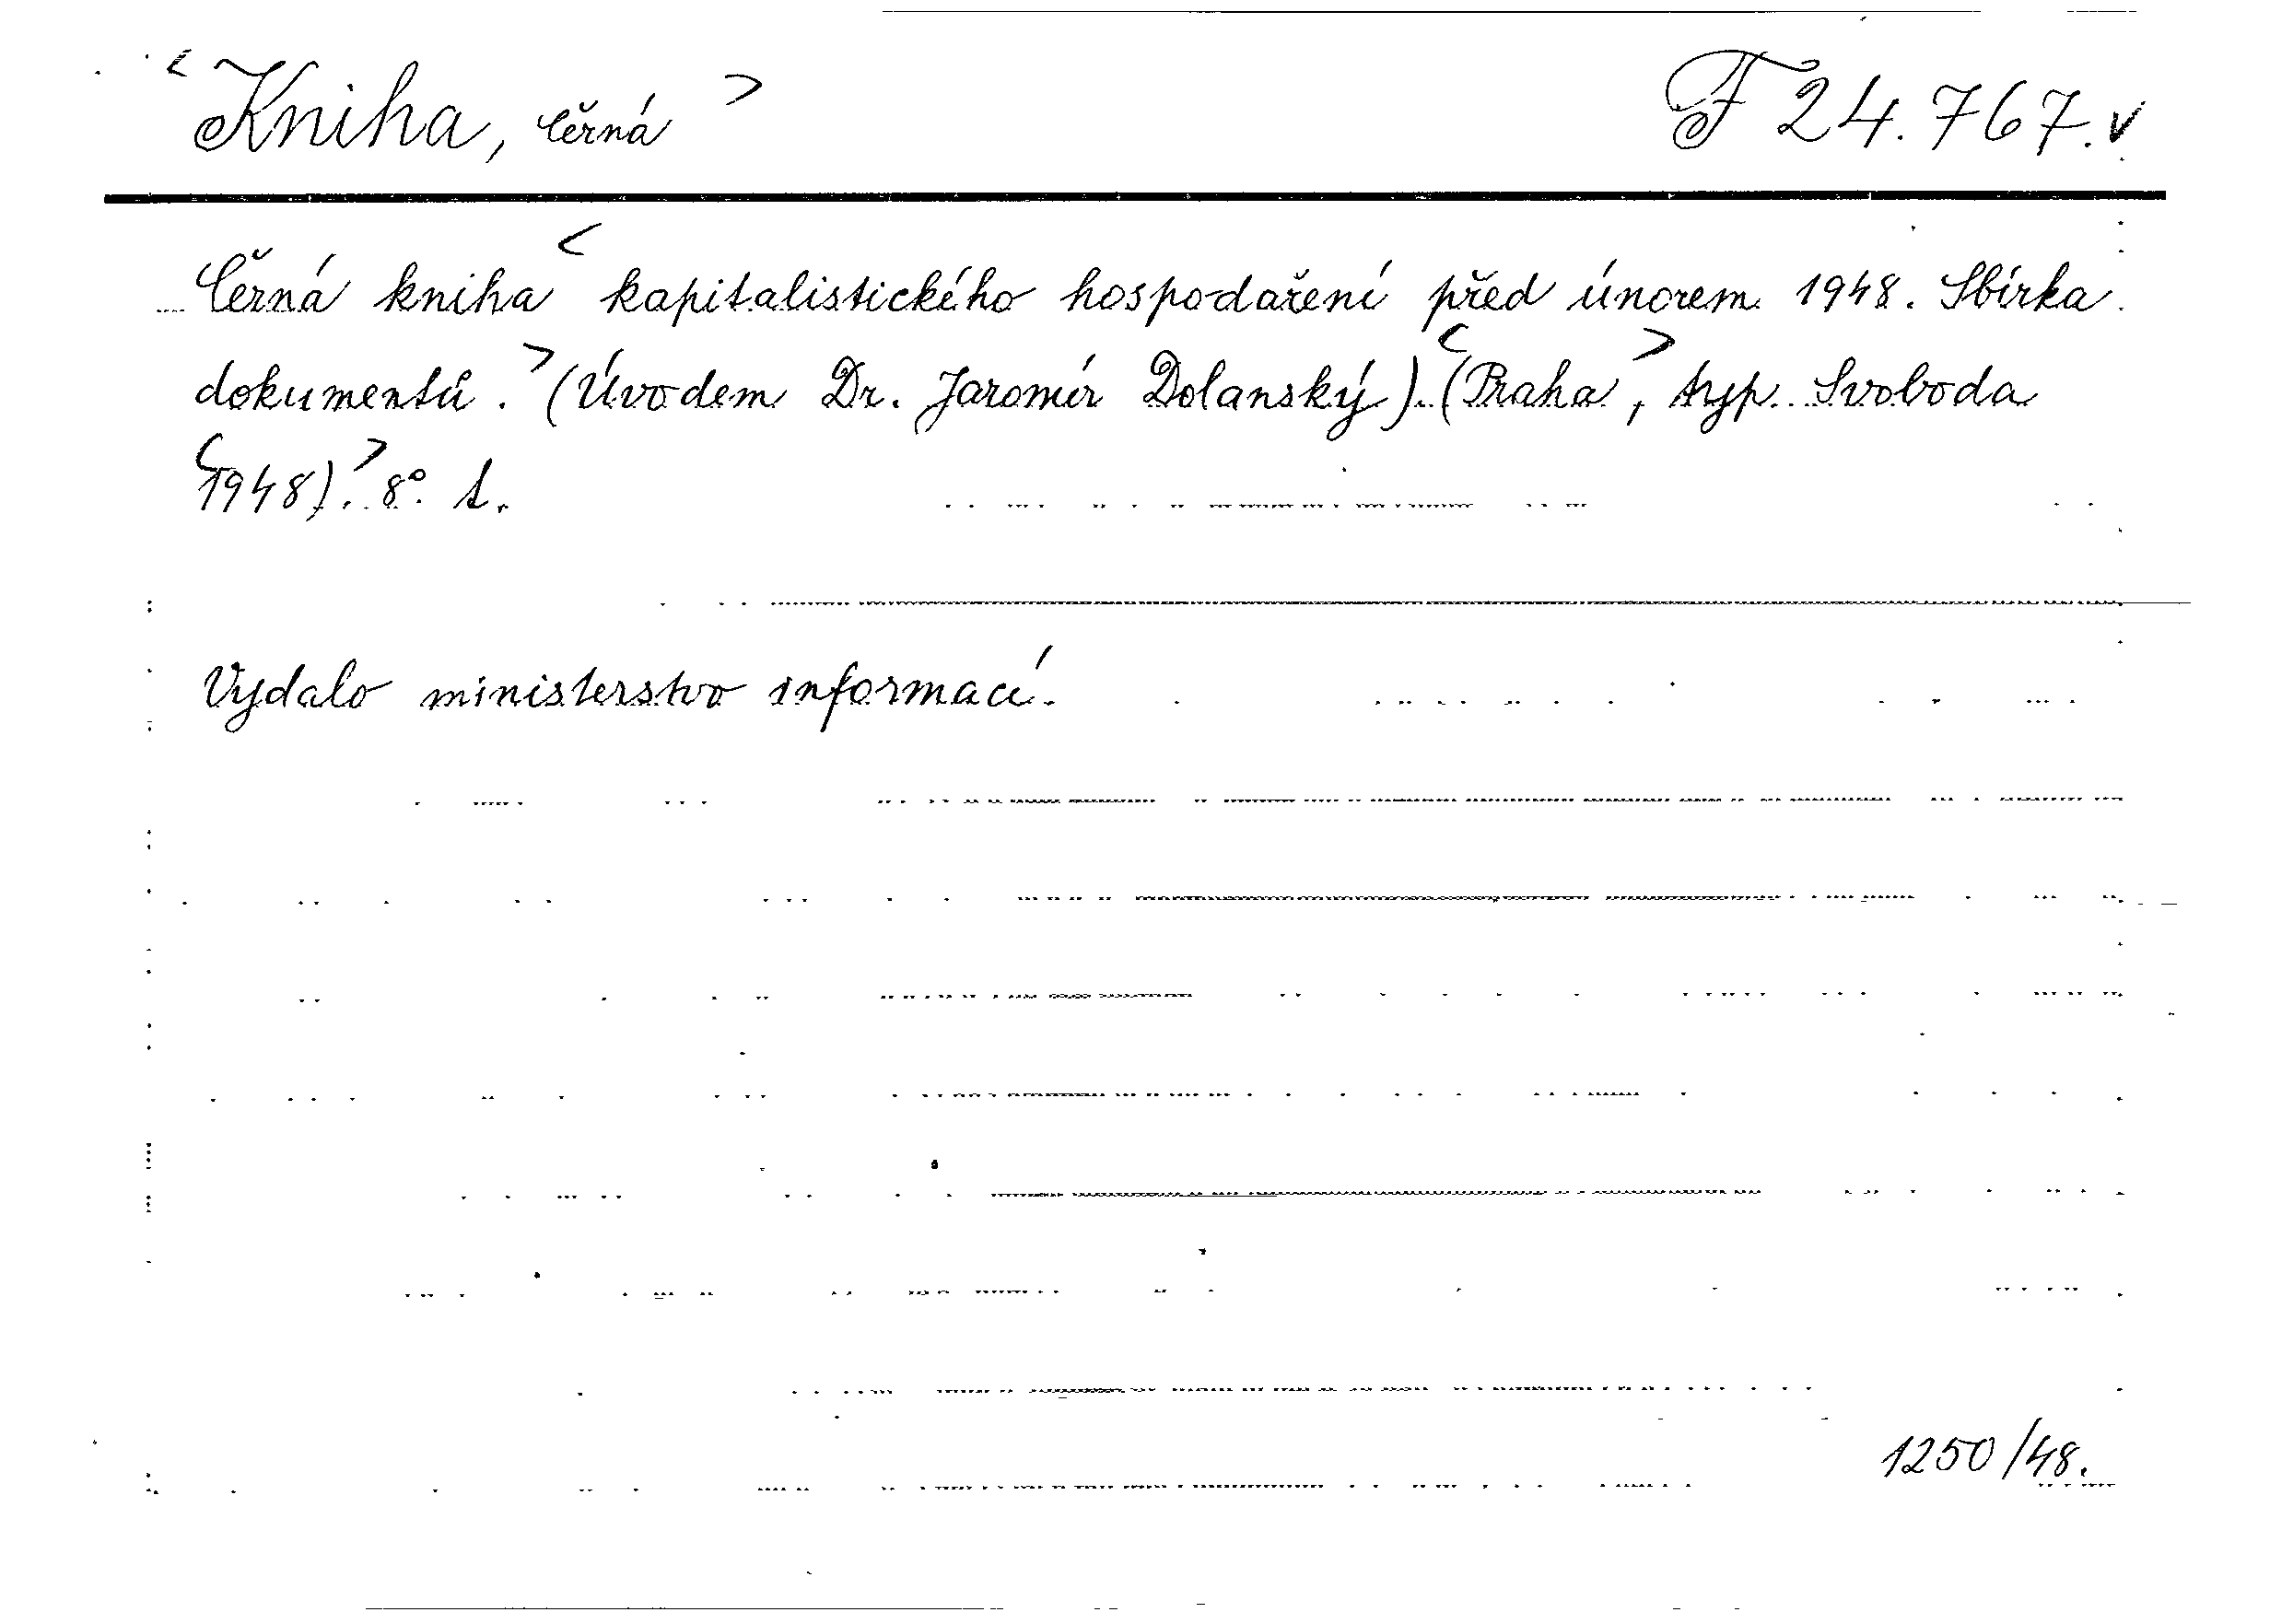 <Kniha, černá>
F 24.767.v
Černá kniha <kapitalistického hospodaření před únorem 1948. Sbírka
dokumentů.> (Úvodem Dr. Jaromír Dolanský). (<Praha>, typ. Svoboda
<1948).> 8°. 1.
Vydalo ministerstvo informací.
1250/48.